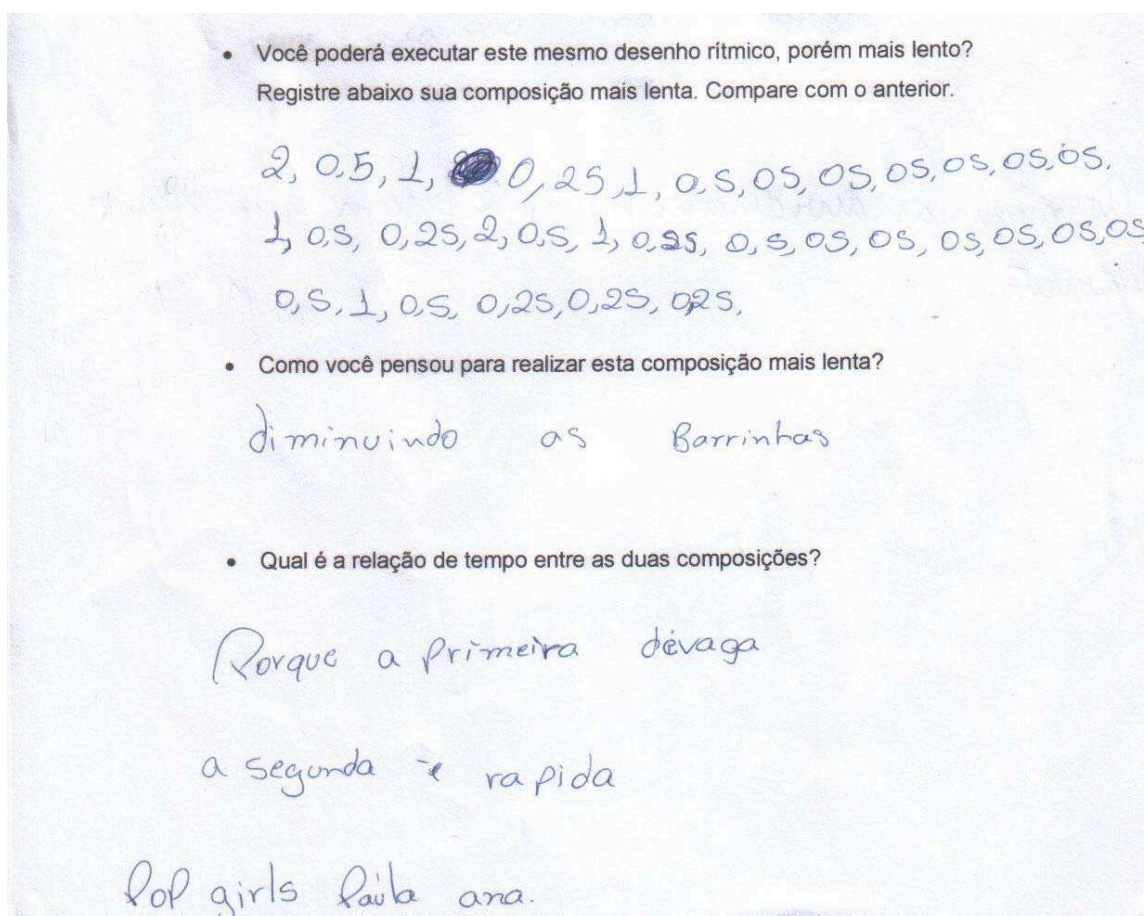 • Você poderá executar este mesmo desenho rítmico, porém mais lento?
Registre abaixo sua composição mais lenta. Compare com o anterior.
2, 0,5, 1, 0,25, 1, 0,5, 05, 05, 05, 05, 05, 05.
1, 0,5, 0,25, 2, 0,5, 1, 0,25, 0,5, 05, 05, 05, 05, 05, 05
0,5, 1, 0,5, 0,25, 0,25, 0,25.
• Como você pensou para realizar esta composição mais lenta?
diminuindo as Barrinhas
• Qual é a relação de tempo entre as duas composições?
Porque a primeira dévaga
a segunda é rapida
Pop girls ana.